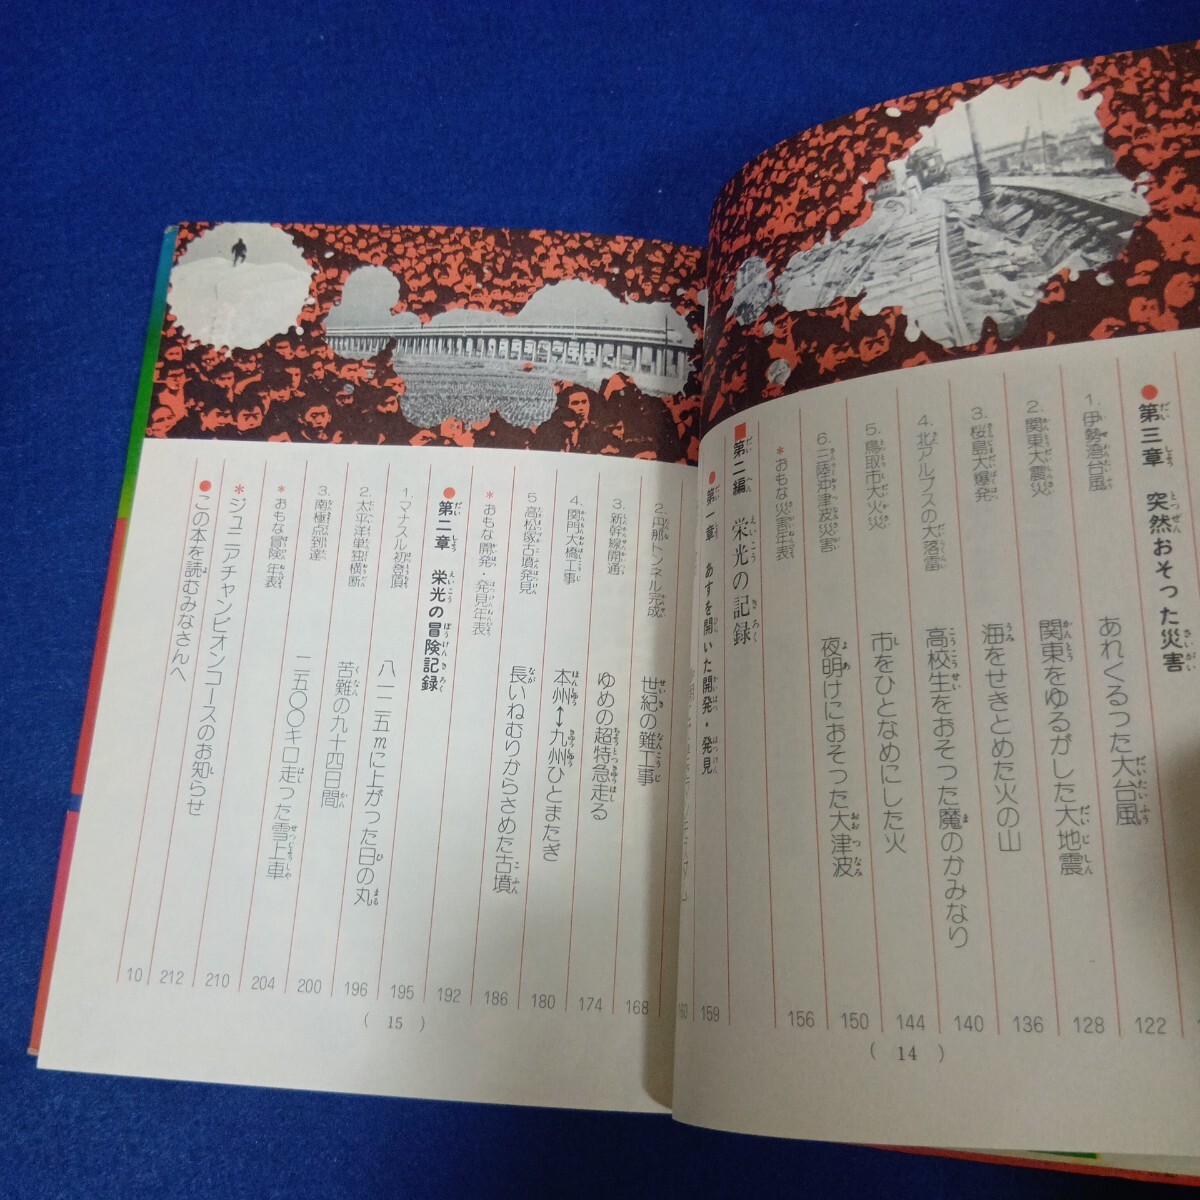 ●第三章 突然おそった災害
1.伊勢湾台風 あれくるった大台風 122
2.関東大震災 関東をゆるがした大地震 128
3.桜島大爆発 海をせきとめた火の山 136
4.北アルプスの大落雷 高校生をおそった魔のかみなり 140
5.鳥取市大火災 市をひとなめにした火 144
6.三陸沖津波災害 夜明けにおそった大津波 150
*おもな災害年表 156
■第二編 栄光の記録
●第一章 あすを開いた開発・発見 159
160
( 14 )
2.丹那トンネル完成 世紀の難工事 168
3.新幹線開通 ゆめの超特急走る 174
4.関門大橋工事 本州↔九州ひとまたぎ 180
5.高松塚古墳発見 長いねむりからさめた古墳 186
*おもな開発 発見年表 192
●第二章 栄光の冒険記録 195
1.マナスル初登頂 八一二五mに上がった日の丸 196
2.太平洋単独横断 苦難の九十四日間 200
3.南極点到達 二五〇〇キロ走った雪上車 204
*おもな冒険年表 210
*ジュニアチャンピオンコースのお知らせ 212
●この本を読むみなさんへ 10
( 15 )